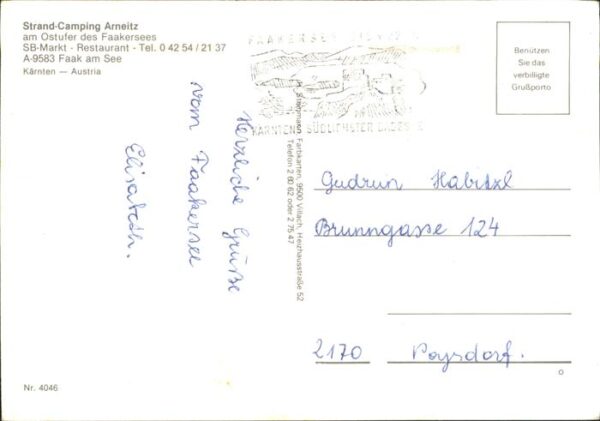 Strand-Camping Arneitz
am Ostufer des Faakersees
SB-Markt - Restaurant - Tel. 0 42 54 / 21 37
A-9583 Faak am See
Kärnten — Austria
FAAKERSEE
KÄRNTENS SÜDLICHSTER BADESEE
Benützen
Sie das
verbilligte
Grußporto
Herzliche Grüße
vom Faakersee
Elisabeth.
Farbkarten, 9500 Villach, Heizhausstraße 52
Telefon 2 60 62 oder 2 75 47
Gudrun Habitzl
Brunngasse 124
2170 Poysdorf.
Nr. 4046